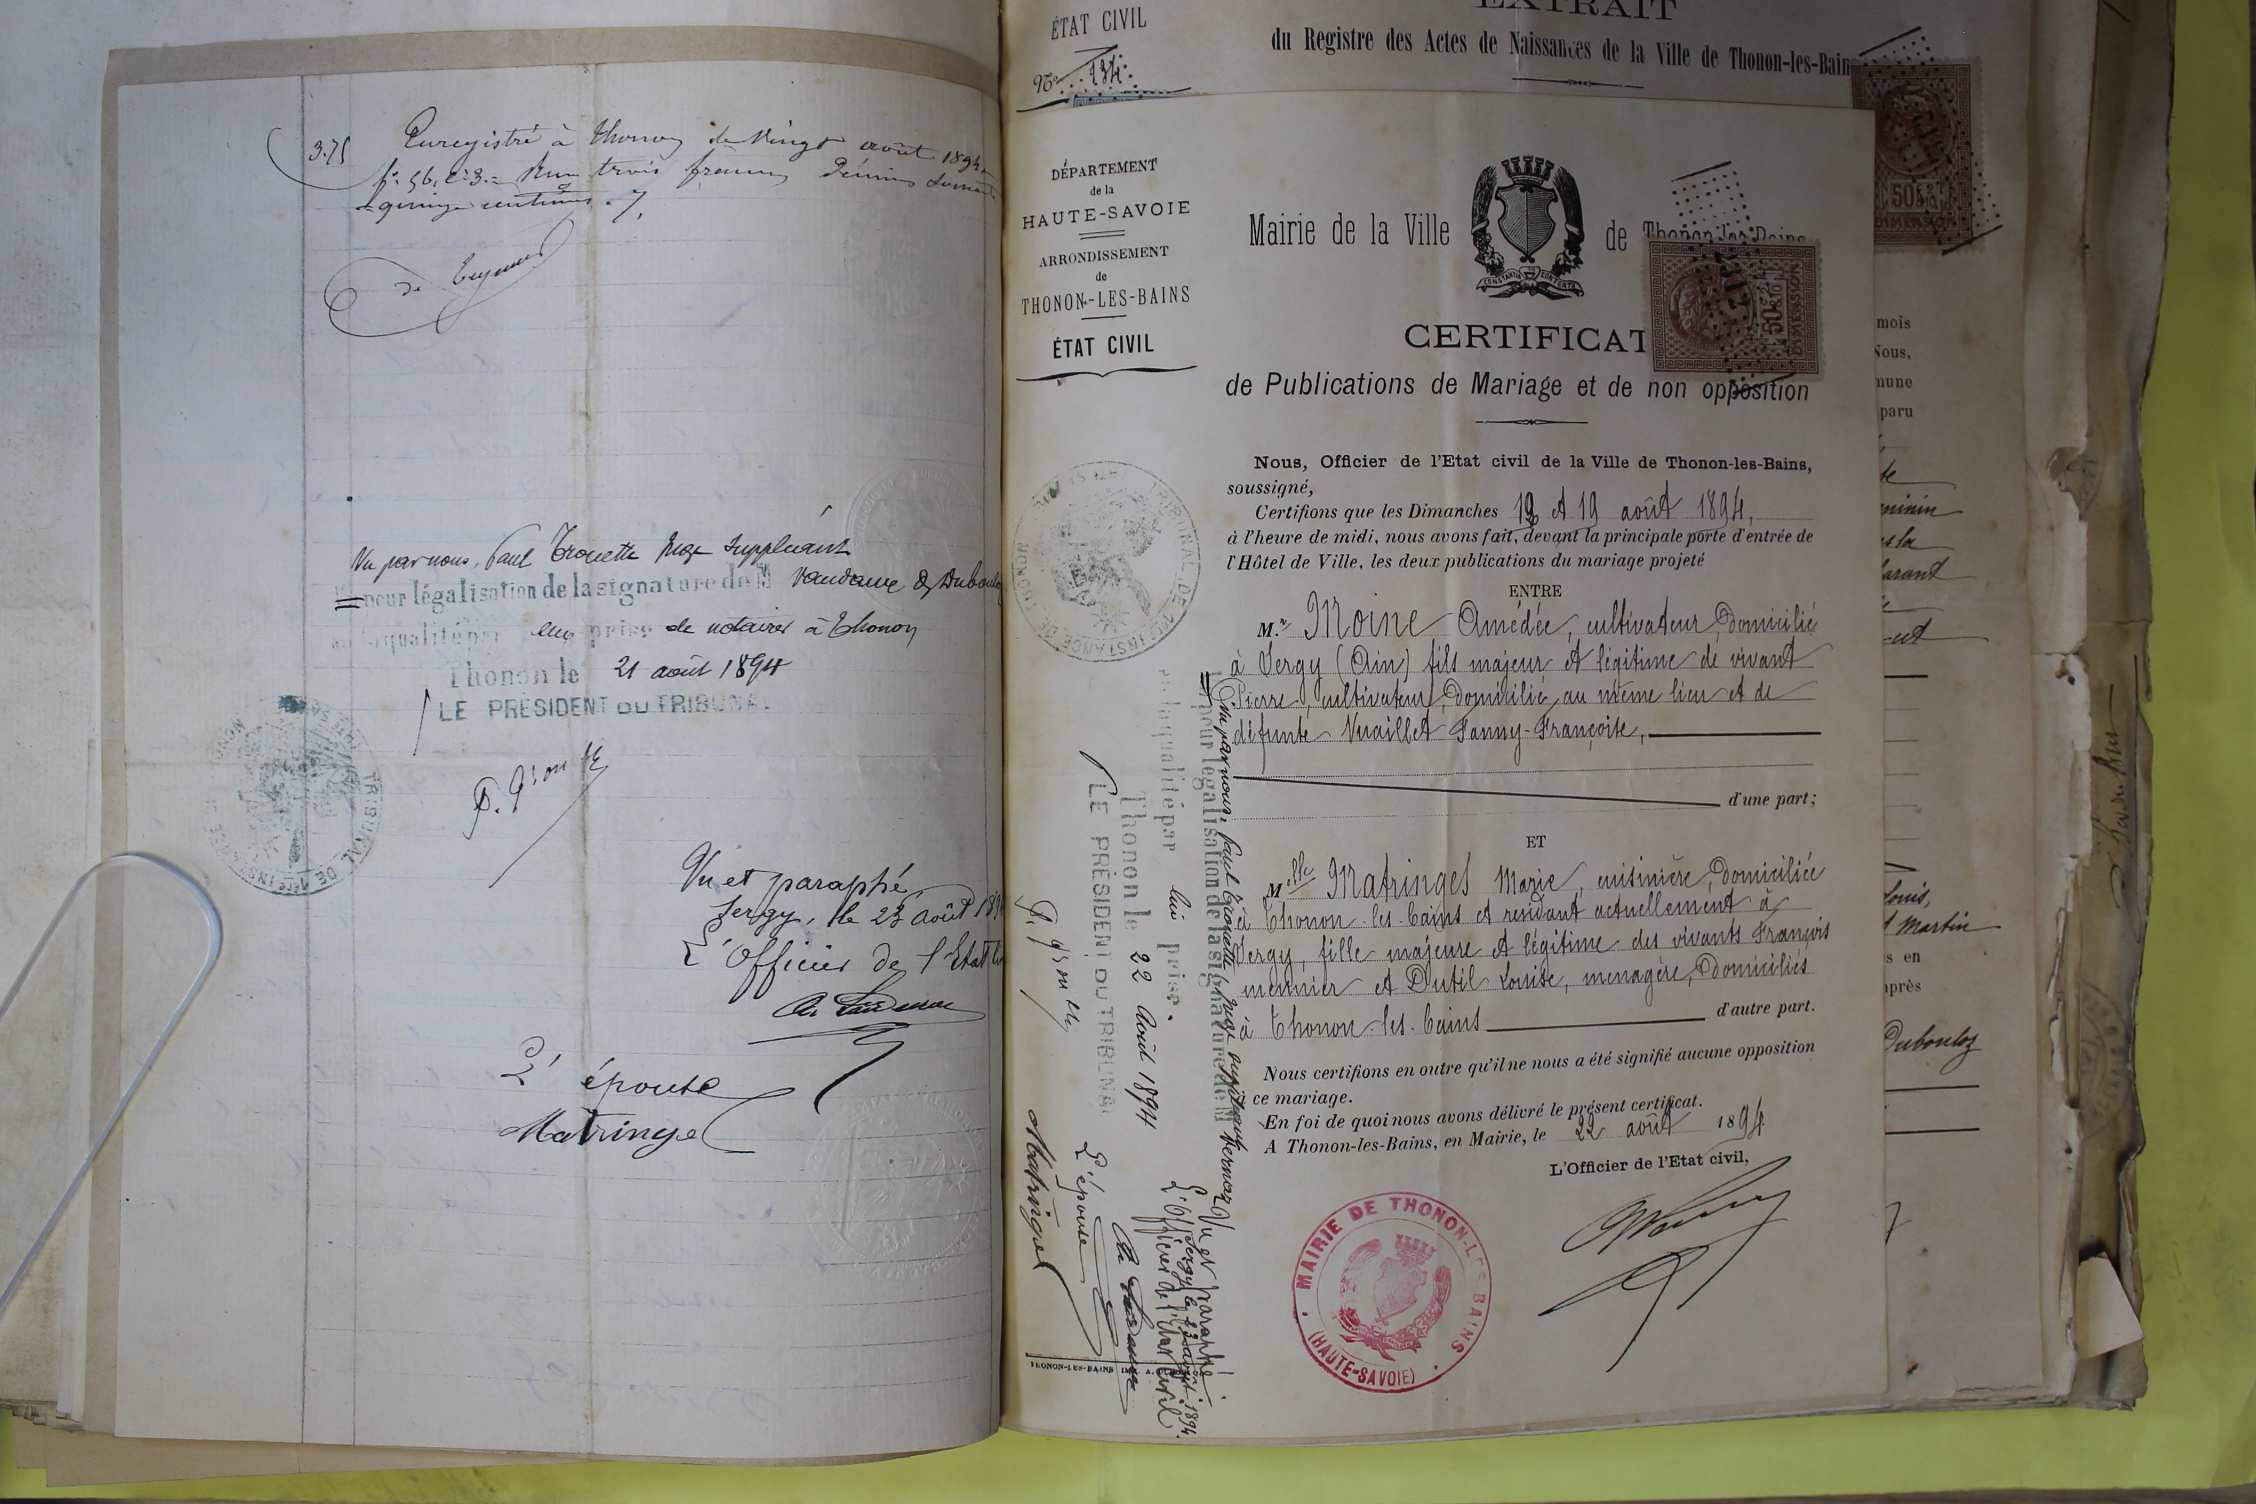 3.75
Enregistré à Thonon le vingt août 1894
f° 56, c. 3. Reçu trois francs Décimes soixante
quinze centimes.
de
Vu par nous, Paul Trouette Juge suppléant
pour légalisation de la signature de M Vaudaux & Dubouloz
en qualité par eux prise de notaires à Thonon
Thonon le 21 août 1894
LE PRÉSIDENT DU TRIBUNAL
TRIBUNAL DE 1ère INSTANCE DE THONON
Vu et paraphé,
Sergy, le 23 août 189
L'Officier de l'Etat Ci
L'épouse
Matringe
ÉTAT CIVIL
N° 134
EXTRAIT
du Registre des Actes de Naissances de la Ville de Thonon-les-Bain
DÉPARTEMENT
de la
HAUTE-SAVOIE
ARRONDISSEMENT
de
THONON-LES-BAINS
ÉTAT CIVIL
Mairie de la Ville de Thonon-les-Bains
CERTIFICAT
de Publications de Mariage et de non opposition
50c
DIMENSION
50c
DIMENSION
Nous, Officier de l'Etat civil de la Ville de Thonon-les-Bains,
soussigné,
Certifions que les Dimanches 12 et 19 août 1894,
à l'heure de midi, nous avons fait, devant la principale porte d'entrée de
l'Hôtel de Ville, les deux publications du mariage projeté
ENTRE
M.r Moine Amédée, cultivateur, domicilié
à Sergy (Ain) fils majeur et légitime de vivant
Pierre, cultivateur, domicilié au même lieu et de
défunte Vuaillet Fanny-Françoise,
d'une part;
ET
Melle Matringes Marie, cuisinière, domiciliée
à Thonon-les-bains et résidant actuellement à
Sergy, fille majeure et légitime des vivants François
meunier et Dutil Louise, menagère, domiciliés
à Thonon-les-bains
d'autre part.
Nous certifions en outre qu'il ne nous a été signifié aucune opposition
à ce mariage.
En foi de quoi nous avons délivré le présent certificat.
A Thonon-les-Bains, en Mairie, le 22 août 1894
L'Officier de l'Etat civil,
MAIRIE DE THONON-LES-BAINS
(HAUTE-SAVOIE)
TRIBUNAL DE 1ère INSTANCE DE THONON
Vu par nous, Paul Trouette, Juge suppléant
pour légalisation de la signature de M
en la qualité par lui prise.
Thonon le 22 Août 1894
LE PRÉSIDENT DU TRIBUNAL
Vu et paraphé
Sergy, le 23 août 1894.
L'Officier de l'Etat Civil
L'épouse
Matringe
THONON-LES-BAINS
mois
Nous,
mune
paru
Louis,
Martin
s en
après
Dubouloz